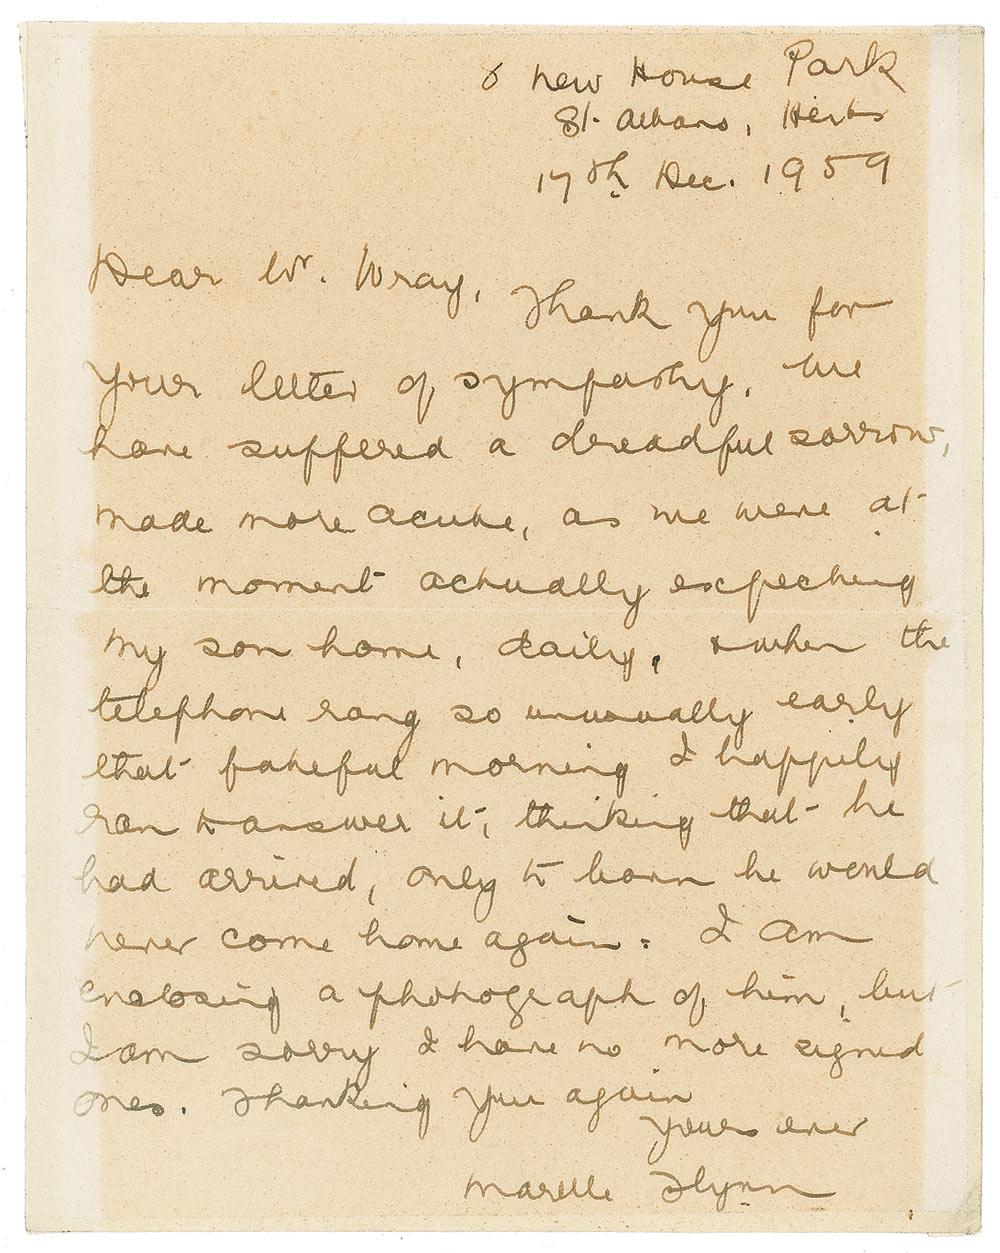 6 New House Park
St. Albans, Herts
17th Dec. 1959
Dear Mr. Wray,
Thank you for
your letter of sympathy. We
have suffered a dreadful sorrow,
made more acute, as we were at
the moment actually expecting
my son home, daily, & when the
telephone rang so unusually early
that fateful morning I happily
ran to answer it, thinking that he
had arrived, only to learn he would
never come home again. I am
enclosing a photograph of him, but
I am sorry I have no more signed
ones. Thanking you again
Yours ever
Marelle Flynn